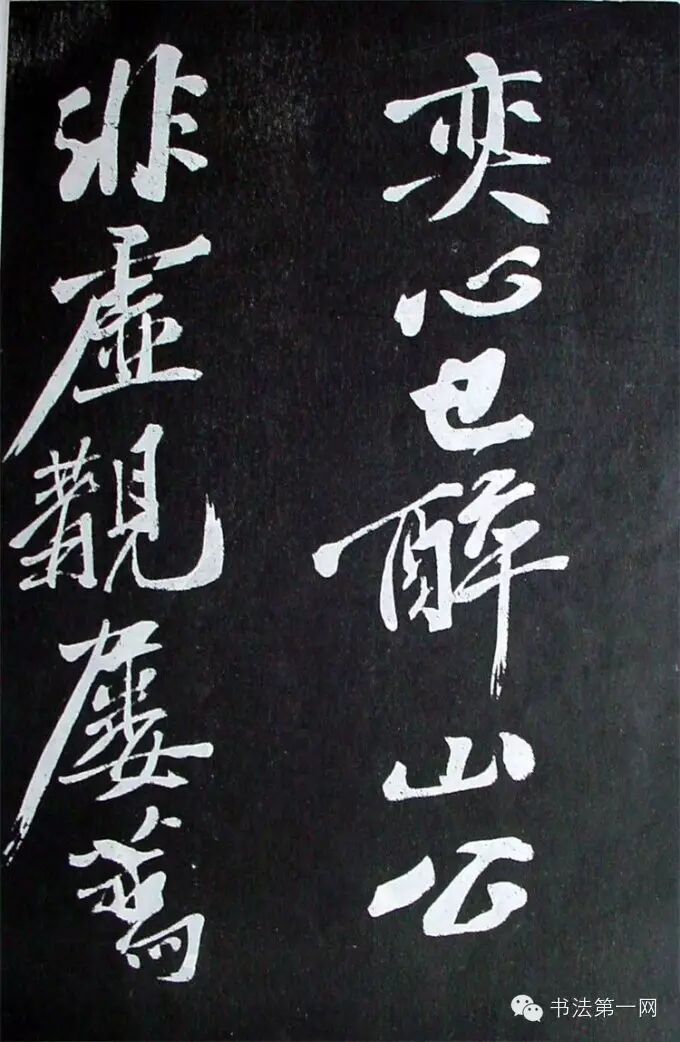 奕心已醉山公
非虛覯屢薦
书法第一网